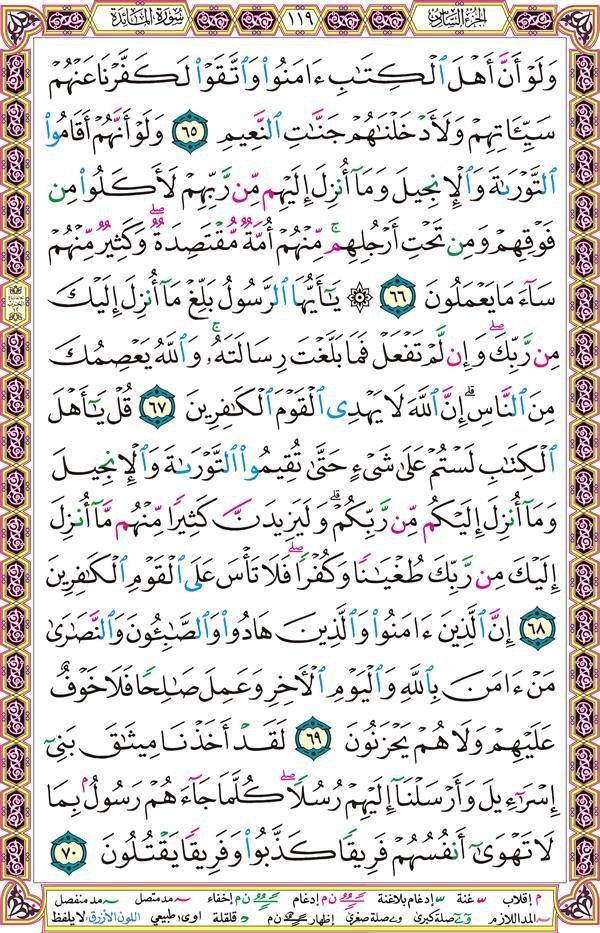 الجزء السادس ١١٩ سورة المائدة
وَلَوْ أَنَّ أَهْلَ ٱلْكِتَٰبِ ءَامَنُوا۟ وَٱتَّقَوْا۟ لَكَفَّرْنَا عَنْهُمْ
سَيِّـَٔاتِهِمْ وَلَأَدْخَلْنَٰهُمْ جَنَّٰتِ ٱلنَّعِيمِ ٦٥ وَلَوْ أَنَّهُمْ أَقَامُوا۟
ٱلتَّوْرَىٰةَ وَٱلْإِنجِيلَ وَمَآ أُنزِلَ إِلَيْهِم مِّن رَّبِّهِمْ لَأَكَلُوا۟ مِن
فَوْقِهِمْ وَمِن تَحْتِ أَرْجُلِهِم ۚ مِّنْهُمْ أُمَّةٌ مُّقْتَصِدَةٌ ۖ وَكَثِيرٌ مِّنْهُمْ
سَآءَ مَا يَعْمَلُونَ ٦٦ ۞ يَٰٓأَيُّهَا ٱلرَّسُولُ بَلِّغْ مَآ أُنزِلَ إِلَيْكَ
مِن رَّبِّكَ ۖ وَإِن لَّمْ تَفْعَلْ فَمَا بَلَّغْتَ رِسَالَتَهُۥ ۚ وَٱللَّهُ يَعْصِمُكَ
مِنَ ٱلنَّاسِ ۗ إِنَّ ٱللَّهَ لَا يَهْدِى ٱلْقَوْمَ ٱلْكَٰفِرِينَ ٦٧ قُلْ يَٰٓأَهْلَ
ٱلْكِتَٰبِ لَسْتُمْ عَلَىٰ شَىْءٍ حَتَّىٰ تُقِيمُوا۟ ٱلتَّوْرَىٰةَ وَٱلْإِنجِيلَ
وَمَآ أُنزِلَ إِلَيْكُم مِّن رَّبِّكُمْ ۗ وَلَيَزِيدَنَّ كَثِيرًا مِّنْهُم مَّآ أُنزِلَ
إِلَيْكَ مِن رَّبِّكَ طُغْيَٰنًا وَكُفْرًا ۖ فَلَا تَأْسَ عَلَى ٱلْقَوْمِ ٱلْكَٰفِرِينَ
٦٨ إِنَّ ٱلَّذِينَ ءَامَنُوا۟ وَٱلَّذِينَ هَادُوا۟ وَٱلصَّٰبِـُٔونَ وَٱلنَّصَٰرَىٰ
مَنْ ءَامَنَ بِٱللَّهِ وَٱلْيَوْمِ ٱلْـَٔاخِرِ وَعَمِلَ صَٰلِحًا فَلَا خَوْفٌ
عَلَيْهِمْ وَلَا هُمْ يَحْزَنُونَ ٦٩ لَقَدْ أَخَذْنَا مِيثَٰقَ بَنِىٓ
إِسْرَٰٓءِيلَ وَأَرْسَلْنَآ إِلَيْهِمْ رُسُلًا ۖ كُلَّمَا جَآءَهُمْ رَسُولٌۢ بِمَا
لَا تَهْوَىٰٓ أَنفُسُهُمْ فَرِيقًا كَذَّبُوا۟ وَفَرِيقًا يَقْتُلُونَ ٧٠
م إقلاب غنة إدغام بلاغنة ن م إدغام ن م إخفاء مد متصل مد منفصل
المد اللازم صلة كبرى صلة صغرى إظهار ن م قلقلة اوى طبيعي اللون الأزرق لا يلفظ